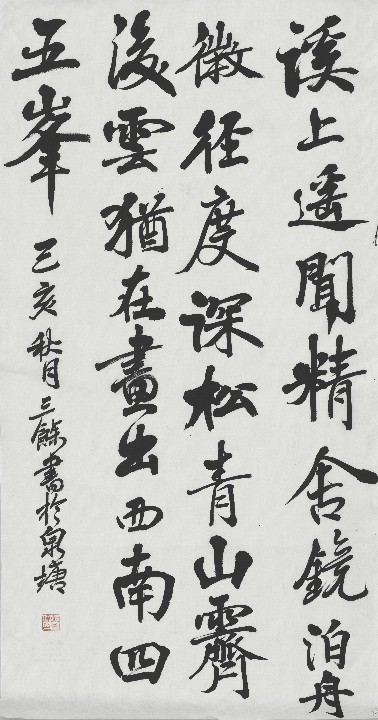 溪上遥聞精舍鐘泊舟
微径度深松青山霽
後雲猶在畫出西南四
五峯
己亥秋月三餘書於泉塘